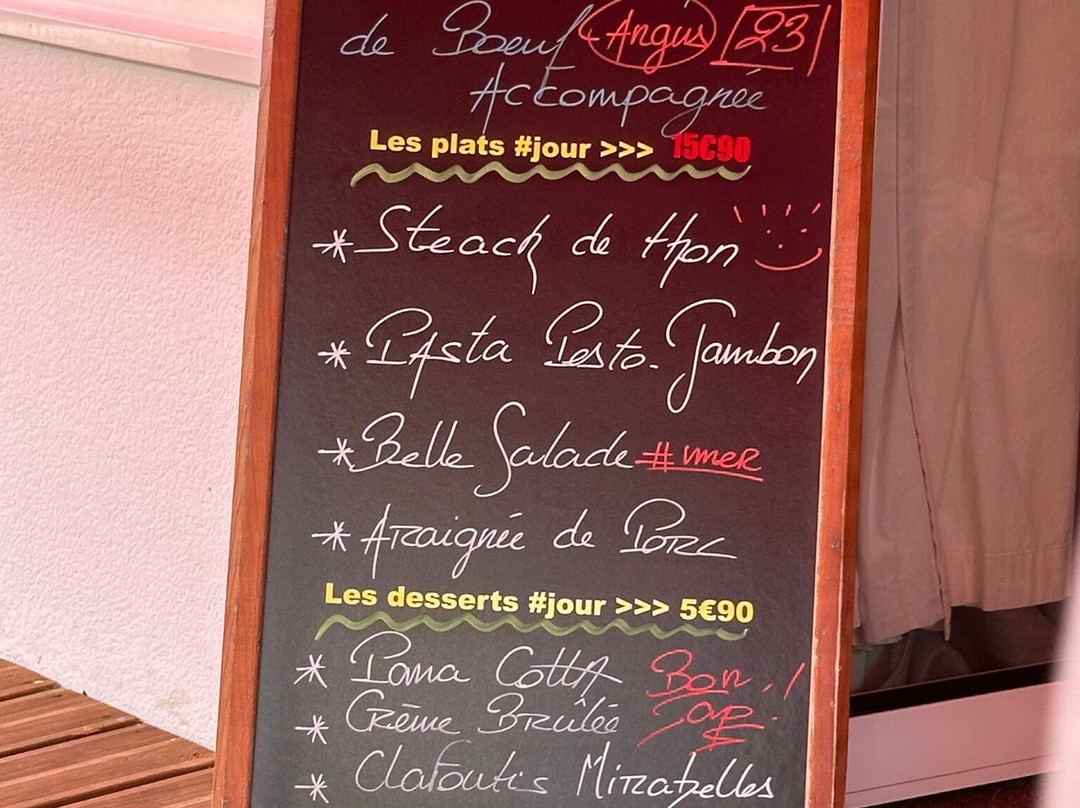 de Boeuf Angus 23
Accompagnée
Les plats #jour >>> 15€90
* Steack de thon
* Pasta Pesto. Jambon
* Belle Salade #mer
* Araignée de Porc
Les desserts #jour >>> 5€90
* Pana Cotta Bon
* Crème Brûlée
* Clafoutis Mirabelles